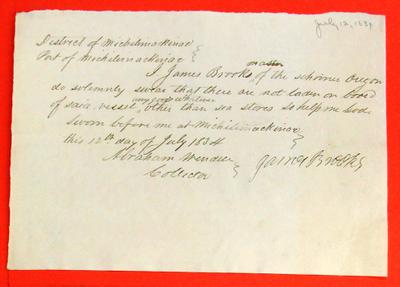 July 12, 1834
District of Michilimackinac
Port of Michilimackinac
master
I James Brooks of the schooner Oregon
do solemnly swear that there are not laden on board
any goods
of said vessel, other than sea stores so help me God.
Sworn before me at Michilimackinac
this 12th day of July 1834
Abraham Wendell
James Brooks
Collector